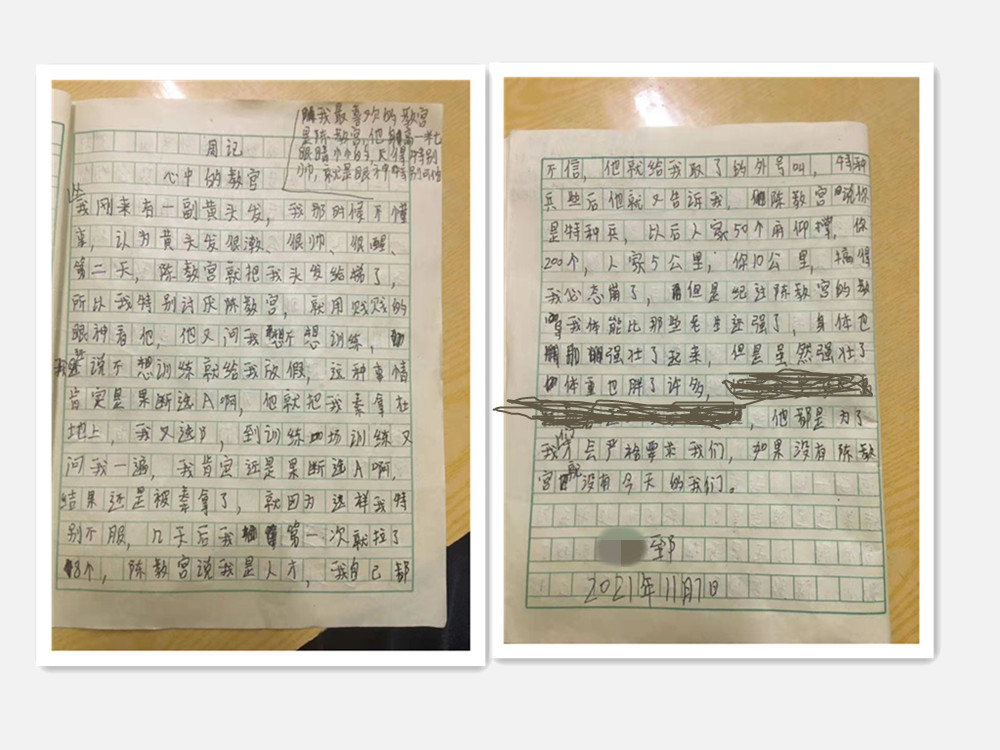 周记
心中的教官
我最喜欢的教官
是陈教官,他身高一米七
眼睛小小的,长得特别
帅,就是眼神特别可怕
我刚来有一副黄头发,我那时候不懂
事,认为黄头发很潮、很帅、很醒、
第二天,陈教官就把我头发给推了,
所以我特别讨厌陈教官,就用贱贱的
眼神看他,他又问我想不想训练,
我说不想训练就给我放假,这种事情
肯定是果断选A啊,他就把我拿在
地上,我又选B,到训练场训练又
问我一遍,我肯定还是果断选A啊,
结果还是被拿了,就因为这样我特
别不服,几天后我第一次就拉了
18个,陈教官说我是人才,我自己都
不信,他就给我取了的外号叫,特种
兵些后他就又告诉我,陈教官说你
是特种兵,以后人家50个俯仰撑,你
200个,人家5公里,你10公里,搞得
我心态崩了,但是经过陈教官的教
官我体能比那些老生还强了,身体也
那强壮了起来,但是虽然强壮了
体重也胖了许多,
,他都是为了
我们才会严格要求我们,如果没有陈教
官就没有今天的我们。
郅
2021年11月7日